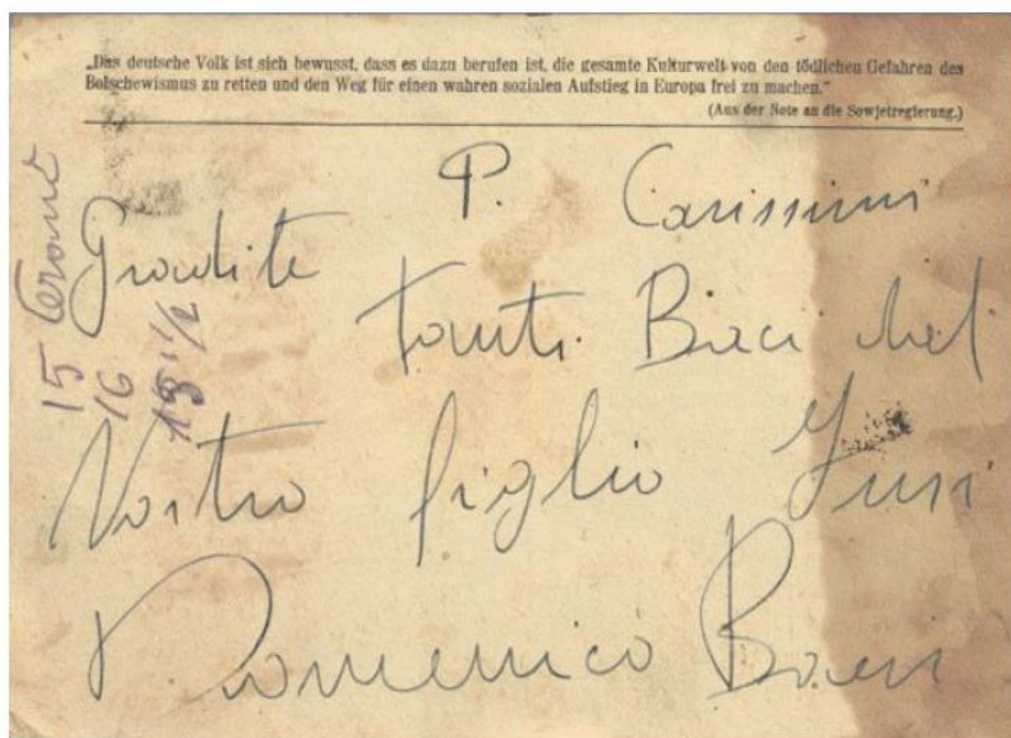 „Das deutsche Volk ist sich bewusst, dass es dazu berufen ist, die gesamte Kulturwelt von den tödlichen Gefahren des
Bolschewismus zu retten und den Weg für einen wahren sozialen Aufstieg in Europa frei zu machen.“
(Aus der Note an die Sowjetregierung.)
P. Carissimi
Gradite
tanti Baci del
Vostro figlio
Domenico
15 Teramo
16
13 1/2